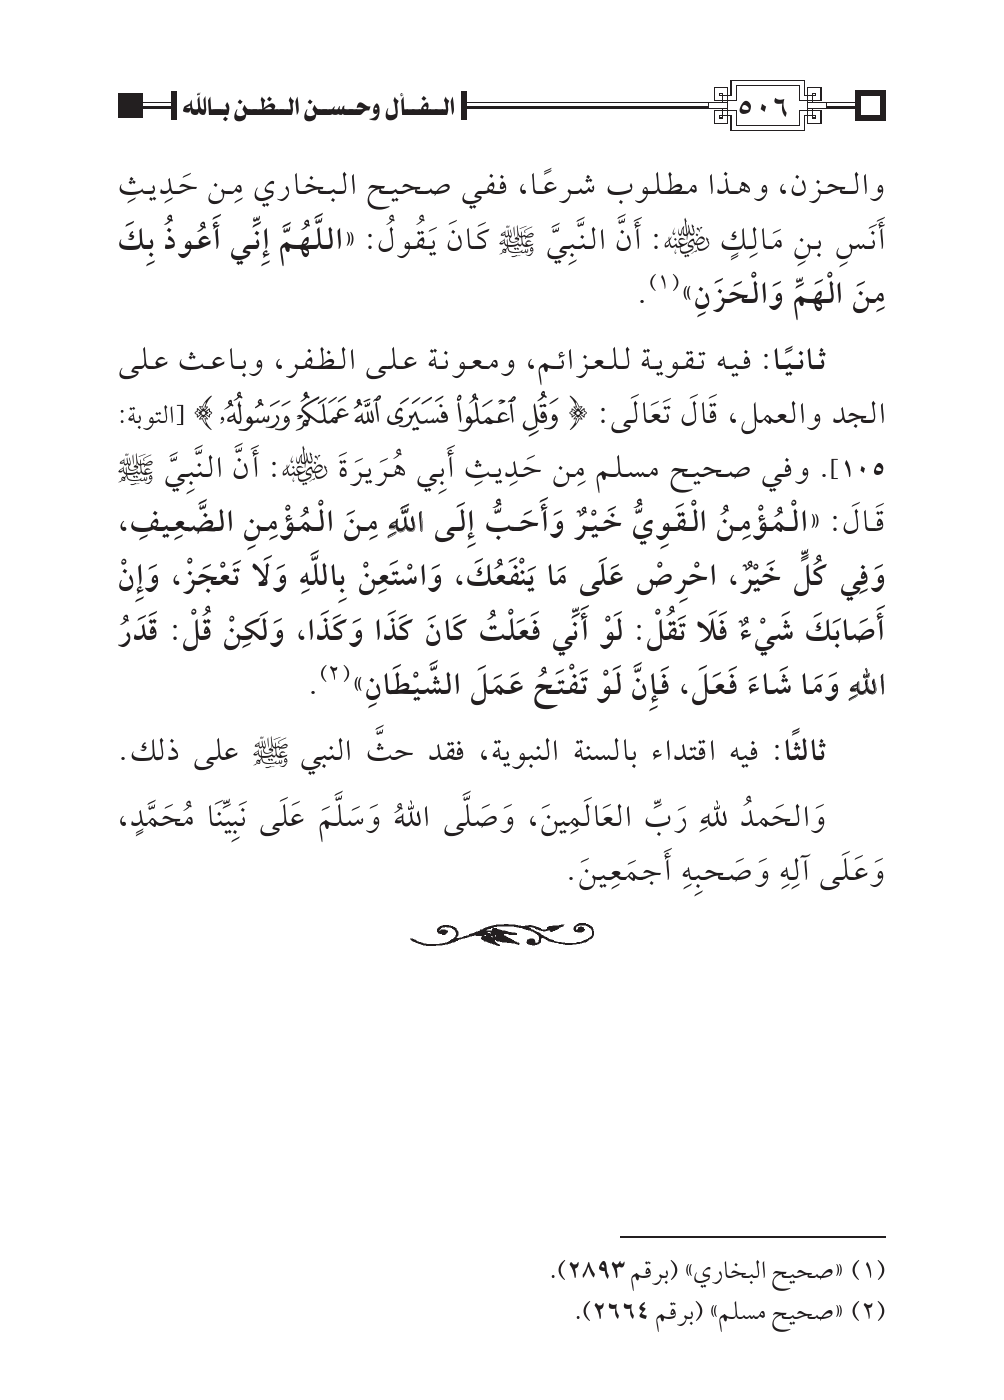 ٥٠٦ الـفـأل وحـسـن الـظـن بـالله
والـحزن، وهـذا مطلوب شرعًا، ففي صحيح البخاري مِن حَدِيثِ
أَنَسِ بنِ مَالِكٍ رضي الله عنه: أَنَّ النَّبِيَّ ﷺ كَانَ يَقُولُ: «اللَّهُمَّ إِنِّي أَعُوذُ بِكَ
مِنَ الْهَمِّ وَالْحَزَنِ»(١).
ثانيًا: فيه تقوية للعزائم، ومعونة على الظفر، وباعث على
الجد والعمل، قَالَ تَعَالَى: ﴿ وَقُلِ ٱعۡمَلُواْ فَسَيَرَى ٱللَّهُ عَمَلَكُمۡ وَرَسُولُهُۥ ﴾ [التوبة:
١٠٥]. وفي صحيح مسلم مِن حَدِيثِ أَبِي هُرَيرَةَ رضي الله عنه: أَنَّ النَّبِيَّ ﷺ
قَالَ: «الْمُؤْمِنُ الْقَوِيُّ خَيْرٌ وَأَحَبُّ إِلَى اللَّهِ مِنَ الْمُؤْمِنِ الضَّعِيفِ،
وَفِي كُلٍّ خَيْرٌ، احْرِصْ عَلَى مَا يَنْفَعُكَ، وَاسْتَعِنْ بِاللَّهِ وَلَا تَعْجَزْ، وَإِنْ
أَصَابَكَ شَيْءٌ فَلَا تَقُلْ: لَوْ أَنِّي فَعَلْتُ كَانَ كَذَا وَكَذَا، وَلَكِنْ قُلْ: قَدَرُ
اللهِ وَمَا شَاءَ فَعَلَ، فَإِنَّ لَوْ تَفْتَحُ عَمَلَ الشَّيْطَانِ»(٢).
ثالثًا: فيه اقتداء بالسنة النبوية، فقد حثَّ النبي ﷺ على ذلك.
وَالحَمدُ للهِ رَبِّ العَالَمِينَ، وَصَلَّى اللهُ وَسَلَّمَ عَلَى نَبِيِّنَا مُحَمَّدٍ،
وَعَلَى آلِهِ وَصَحبِهِ أَجمَعِينَ.
(١) «صحيح البخاري» (برقم ٢٨٩٣).
(٢) «صحيح مسلم» (برقم ٢٦٦٤).